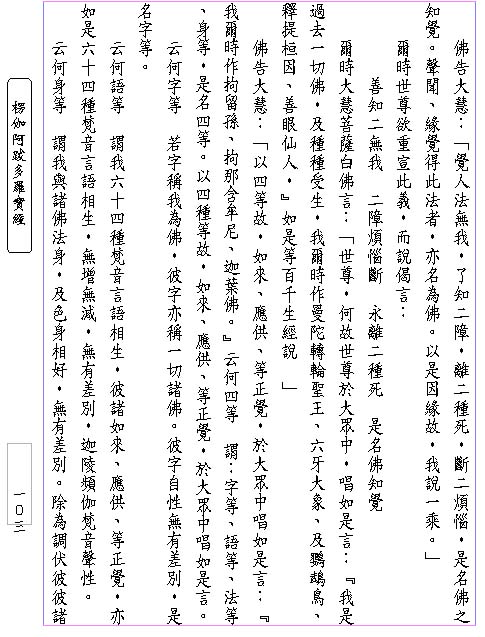 佛告大慧：「覺人法無我，了知二障，離二種死，斷二煩惱，是名佛之
知覺。聲聞、緣覺得此法者，亦名為佛。以是因緣故，我說一乘。」
爾時世尊欲重宣此義，而說偈言：
善知二無我　二障煩惱斷　永離二種死　是名佛知覺
爾時大慧菩薩白佛言：「世尊，何故世尊於大眾中，唱如是言：『我是
過去一切佛，及種種受生，我爾時作曼陀轉輪聖王、六牙大象、及鸚鵡鳥、
釋提桓因、善眼仙人，』如是等百千生經說　」
佛告大慧：「以四等故，如來、應供、等正覺，於大眾中唱如是言：『
我爾時作拘留孫、拘那含牟尼、迦葉佛。』云何四等　謂：字等、語等、法等
、身等，是名四等。以四種等故，如來、應供、等正覺，於大眾中唱如是言。
云何字等　若字稱我為佛，彼字亦稱一切諸佛。彼字自性無有差別，是
名字等。
云何語等　謂我六十四種梵音言語相生，彼諸如來、應供、等正覺，亦
如是六十四種梵音言語相生，無增無減，無有差別，迦陵頻伽梵音聲性。
云何身等　謂我與諸佛法身，及色身相好，無有差別。除為調伏彼彼諸
楞伽阿跋多羅寶經
一０三